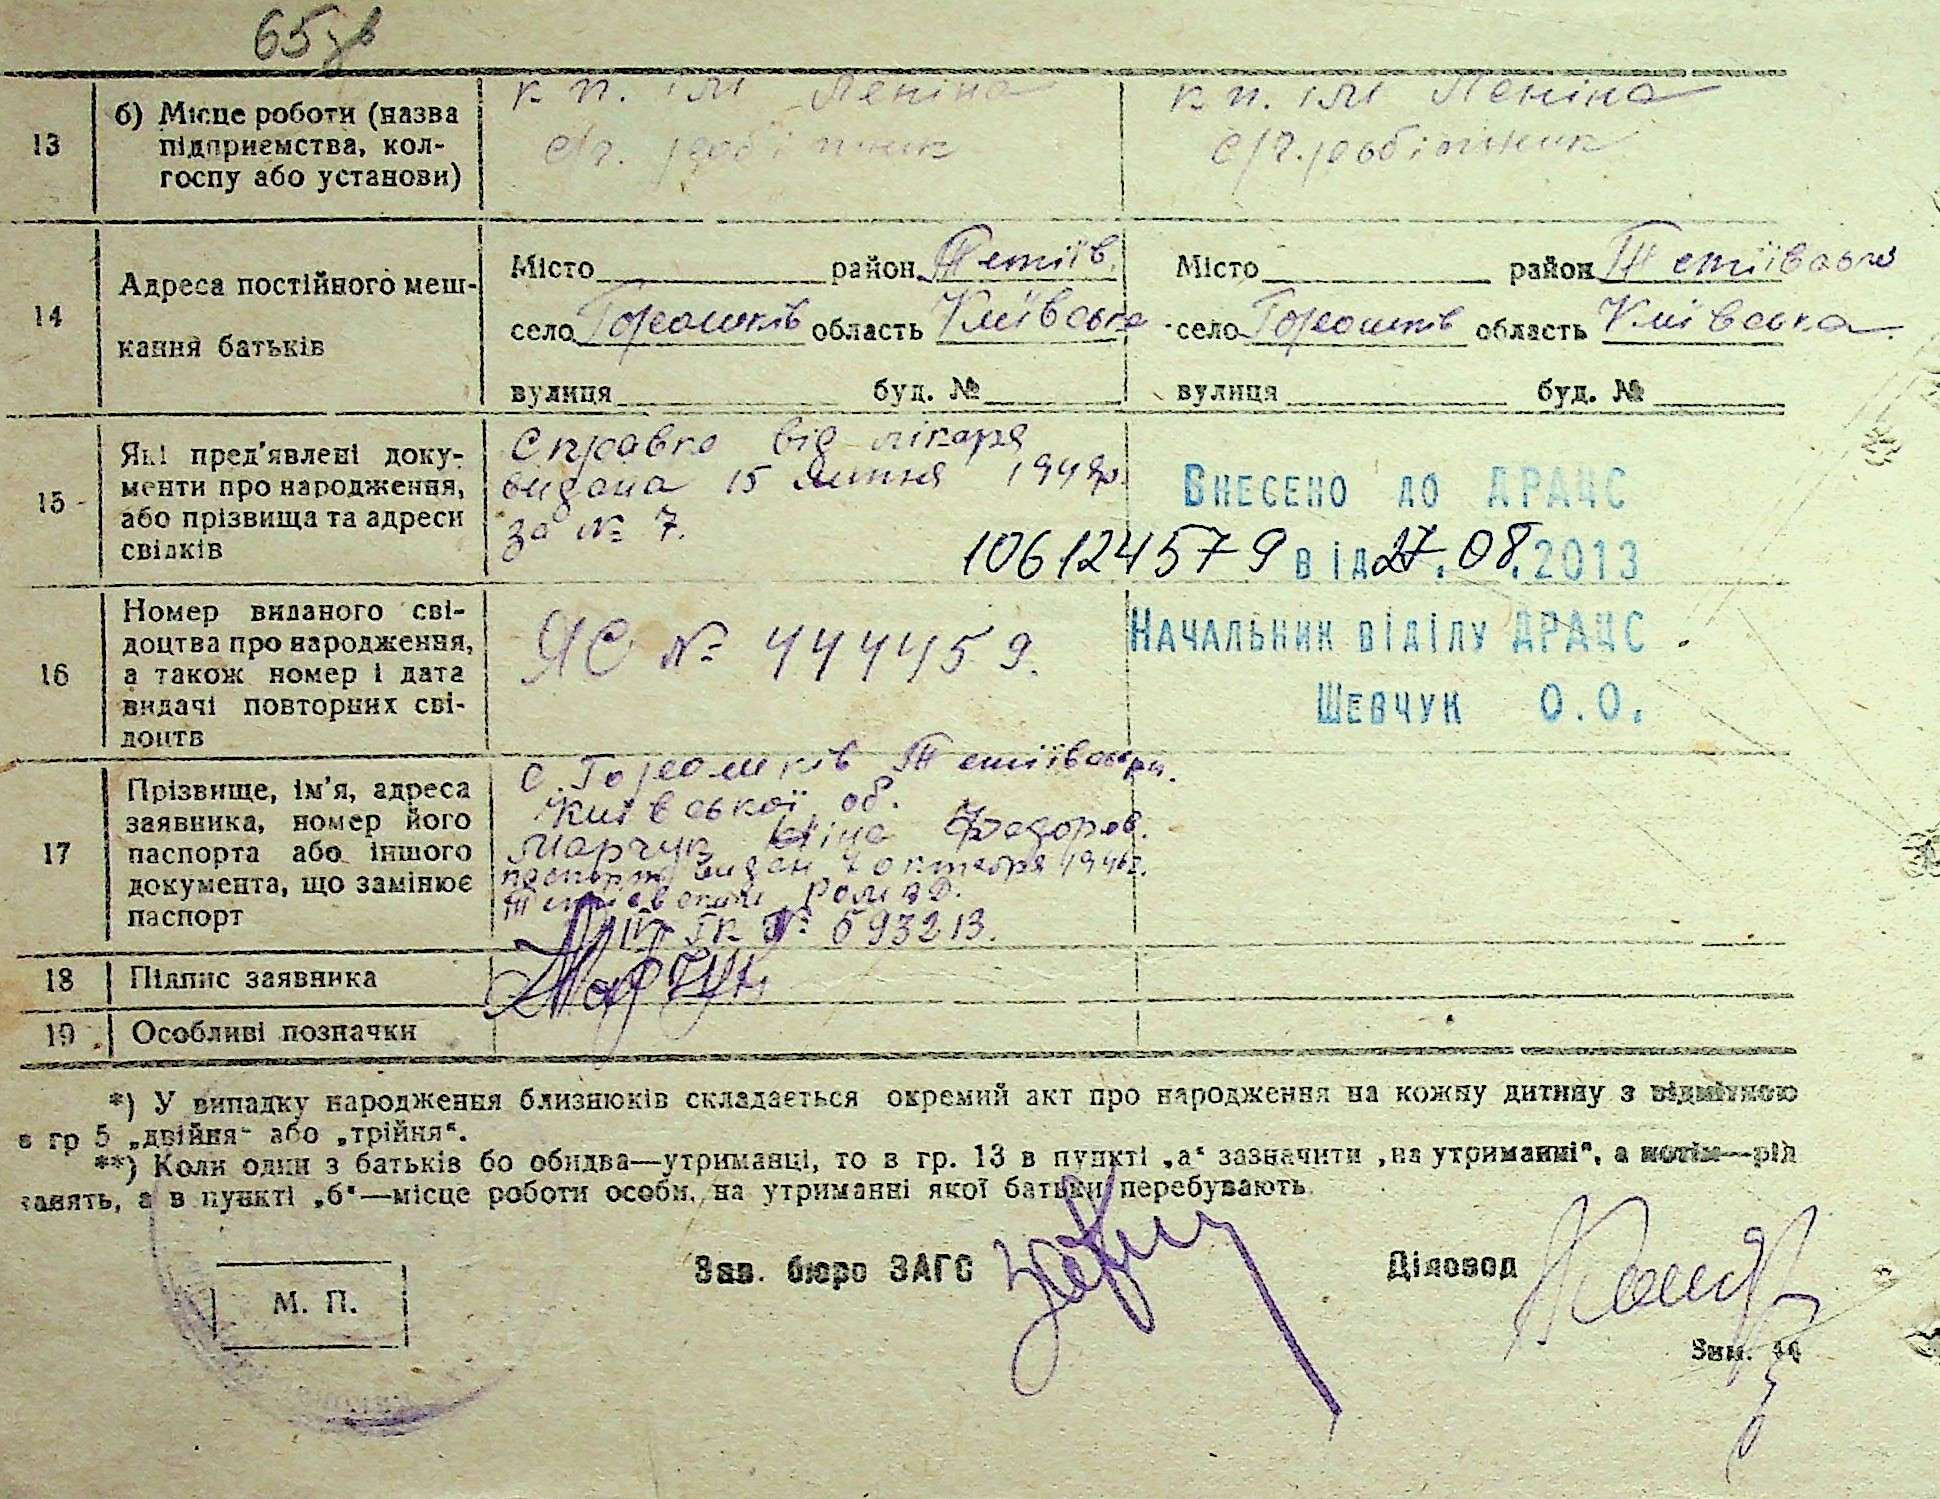 65зв
13
б) Місце роботи (назва
підприємства, кол-
госпу або установи)
к п. ім Леніна
с/г. робітник
к п. ім Леніна
с/г. робітник
14
Адреса постійного меш-
кання батьків
Місто район Тетіїв.
село Горошків область Київська
вулиця буд. №
Місто район Тетіївсько
село Горошків область Київська.
вулиця буд. №
15
Які пред'явлені доку-
менти про народження,
або прізвища та адреси
свідків
Справка від лікаря
видана 15 липня 1948р.
за № 7.
Внесено до ДРАЦС
106124579 від 27.08.2013
16
Номер виданого сві-
доцтва про народження,
а також номер і дата
видачі повторних сві-
доцтв
ЯС № 444459.
Начальник відділу ДРАЦС
Шевчук О.О.
17
Прізвище, ім'я, адреса
заявника, номер його
паспорта або іншого
документа, що замінює
паспорт
с. Горошків Тетіївськ рн.
Київської об.
Марчук Ніна Федоров.
паспорт видан 7 октебря 1946г.
№ 593213.
18
Підпис заявника
Марчук
19
Особливі позначки
*) У випадку народження близнюків складається окремий акт про народження на кожну дитину з відміткою
в гр 5 „двійня“ або „трійня“.
**) Коли один з батьків бо обидва—утриманці, то в гр. 13 в пункті „а“ зазначити „на утриманні“, а потім—рід
занять, а в пункті „б“—місце роботи особи, на утриманні якої батьки перебувають.
М. П.
Зав. бюро ЗАГС
Діловод
Зам. 44